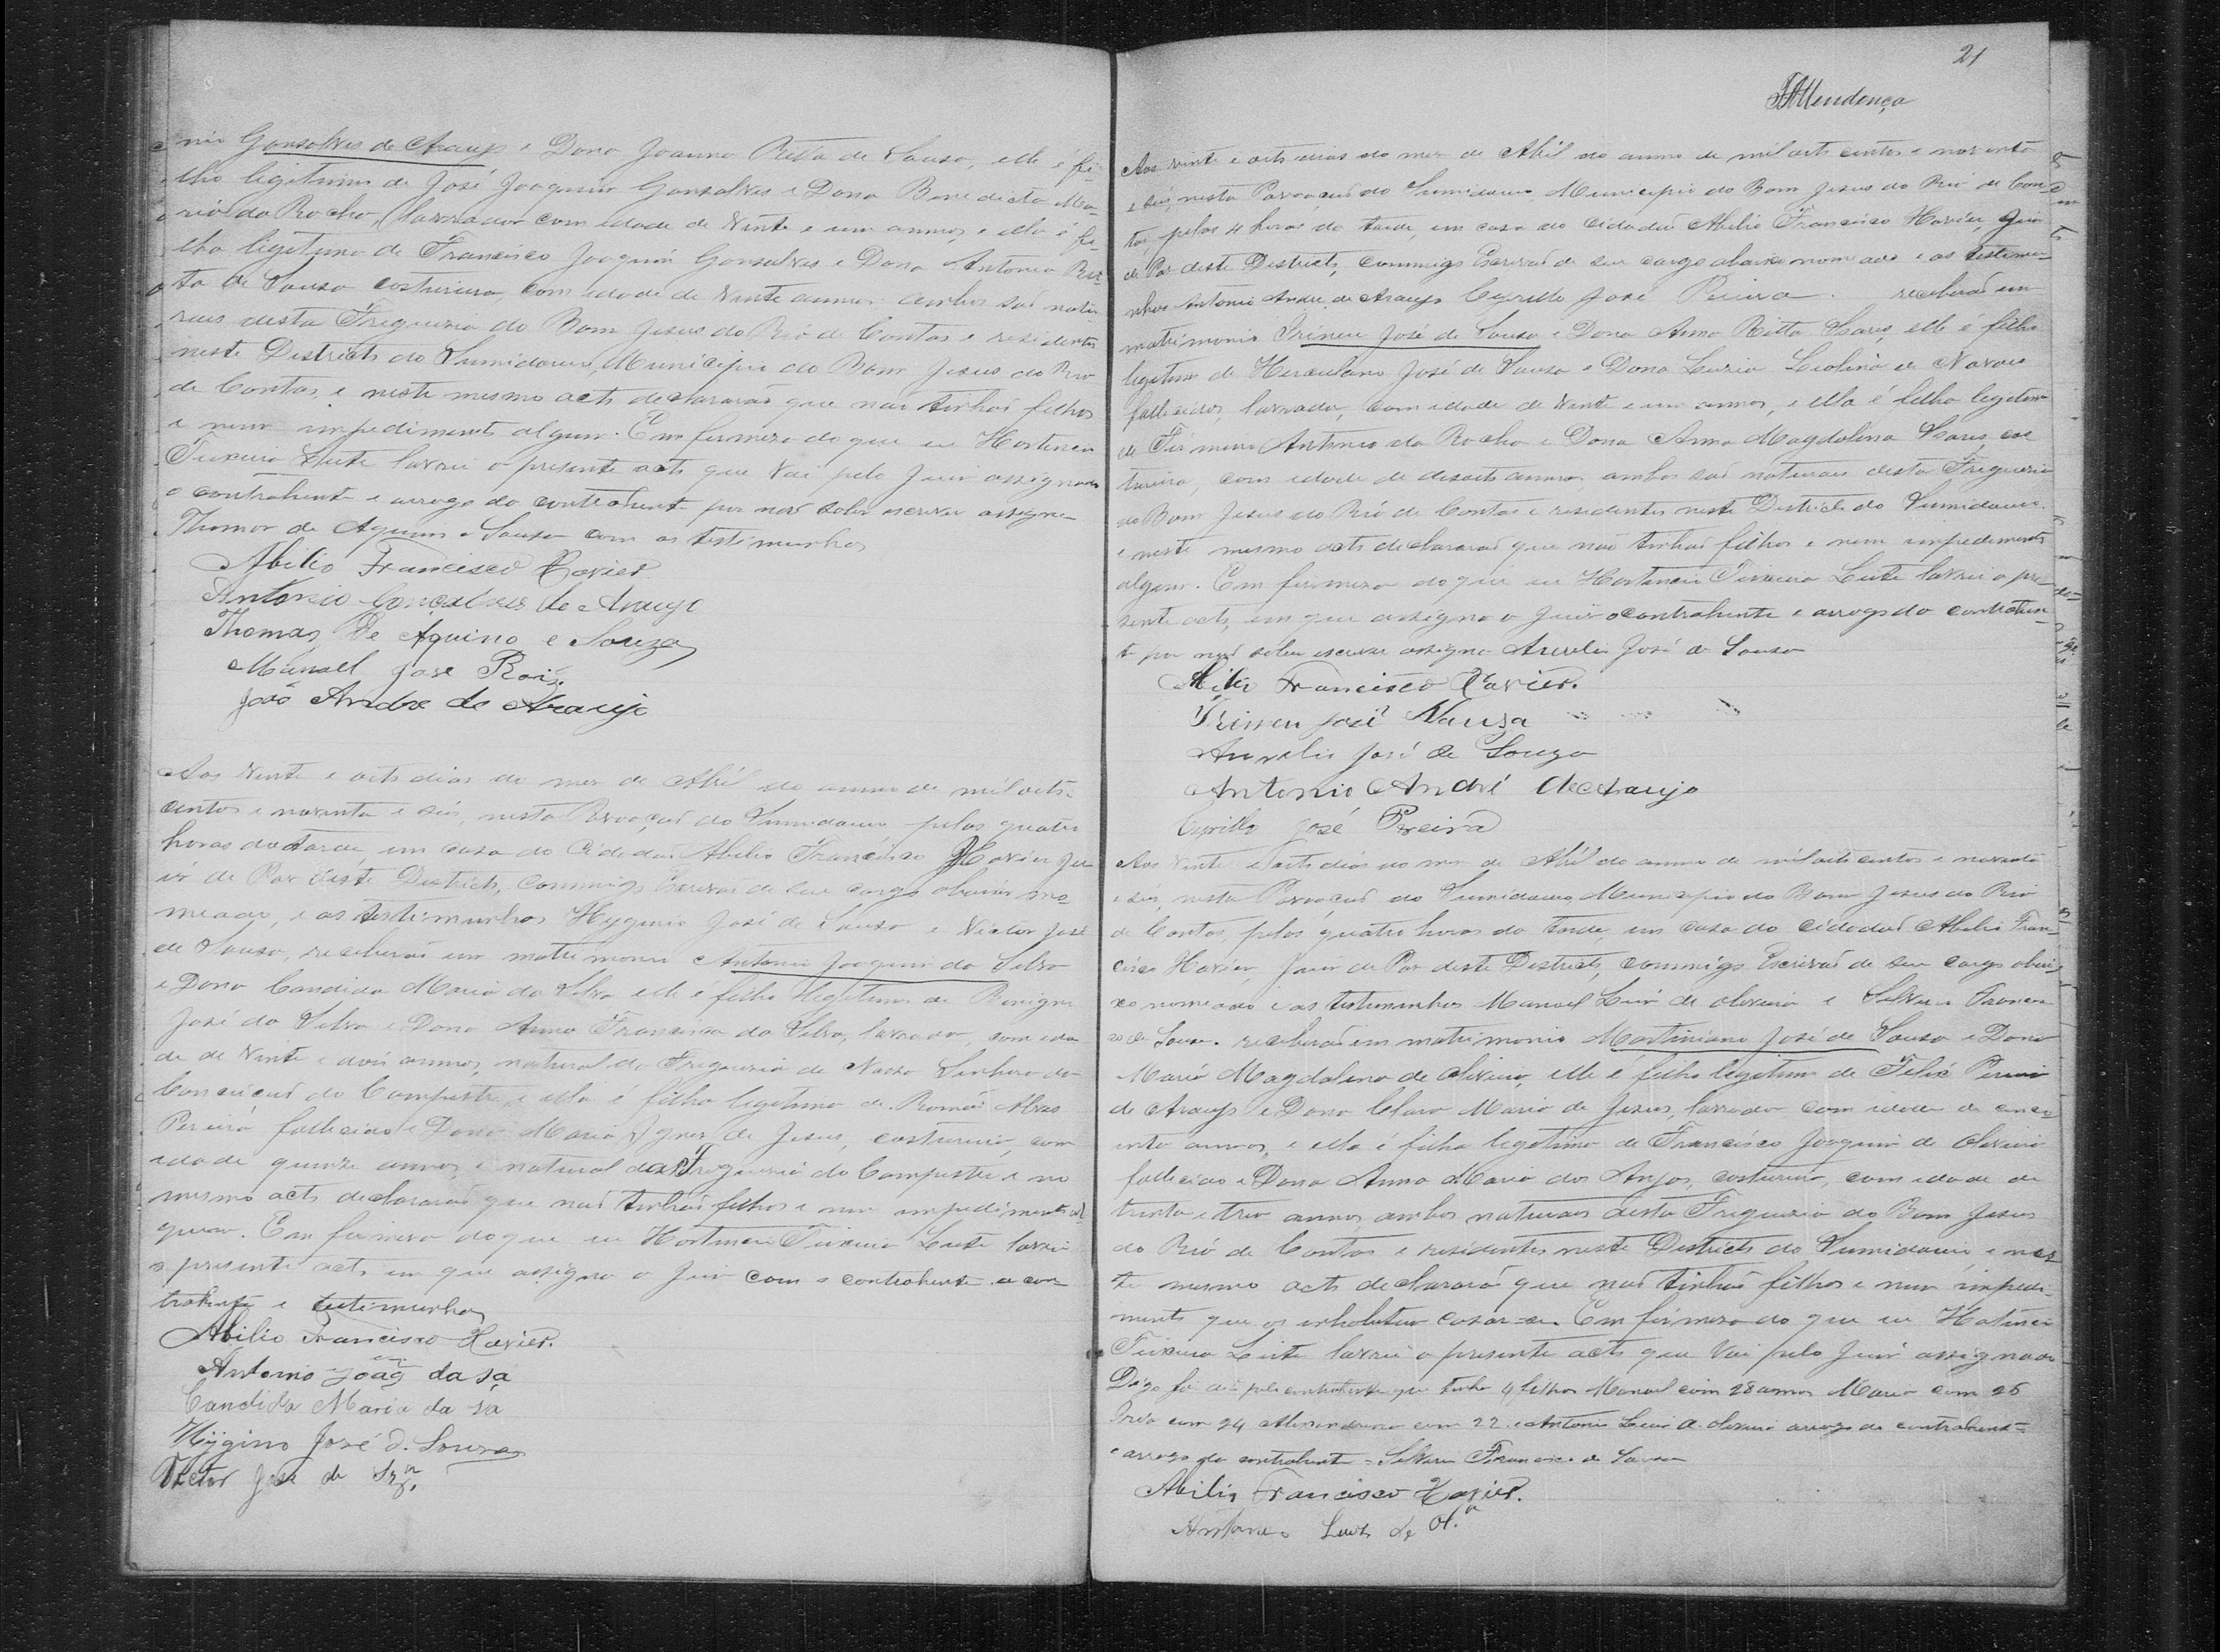 nio Gonsalves de Araujo e Dona Joanna Ritta de Sousa, elle é fi-
lho legitimo de José Joaquim Gonsalves e Dona Benedicta Ma-
ria da Rocha, lavrador com idade de vinte e um annos, e ella é fi-
lha legitima de Francisco Joaquim Gonsalves e Dona Antonia Rit-
ta de Sousa costureira, com idade de vinte annos ambos saõ natu-
raes desta Freguezia do Bom Jesus do Rio de Contas e residentes
neste Districto do Sumidouro, Municipio do Bom Jesus do Rio
de Contas, e neste mesmo acto declararaõ que naõ tinhaõ filhos
e nem impedimento algum. Em firmeza do que eu Hortencio
Teixeira Leite lavrei o presente acto que vai pelo Juiz assignado
o contrahente e arrogo da contrahente por naõ saber escrever assigna
Thomas de Aquino e Sousa com as testimunhas
Abilio Francisco Xavier.
Antonio Gonçalves de Araujo
Thomas De Aquino e Souza
Manoell José Rois.
João Andre de Araujo
Aos vinte e oito dias do mez de Abril do anno de mil oito-
centos e noventa e seis, nesta Povoaçaõ do Sumidouro pelas quatro
horas da tarde, em casa do Cidadaõ Abilio Francisco Xavier Ju-
iz de Paz deste Districto, commigo Escrivaõ de seu cargo abaixo no-
meado, e as testimunhas Hygino José de Sousa e Victor José
de Sousa, receberaõ em matrimonio Antonio Joaquim da Silva
e Dona Candida Maria da Silva elle é filho legitimo de Benigno
José da Silva e Dona Anna Francisca da Silva, lavrador, com ida
de de vinte e dois annos, natural da Freguezia de Nossa Senhora da
Conceiçaõ do Campestre, e ella é filha legitima de Romaõ Alves
Pereira fallecido e Dona Maria Ignes de Jesus, costureira, com
idade quinze annos, e natural da Freguezia do Campestre e no
mesmo acto declararaõ que naõ tinhaõ filhos e nem impedimento al-
gum. Em firmeza do que eu Hortencio Teixeira Leite lavrei
o presente acto em que assigna o Juiz com o contrahente a con-
trahente e testimunhas
Abilio Francisco Xavier.
Antonio Joaqim da Sa
Candida Maria da Sa
Hygino José d. Souza
Victor José de Sza.
21
Mendonça
Aos vinte e oito dias do mez de Abril do anno de mil oito centos e noventa
e seis, nesta Povoaçaõ do Sumidouro, Municipio do Bom Jesus do Rio de Con-
tas, pelas 4 horas da tarde, em casa do Cidadaõ Abilio Francisco Xavier, Juiz
de Paz deste Districto, commigo Escrivaõ de seu cargo abaixo nomeado e as testimu-
nhas Antonio André de Araujo Cyrillo José Pereira receberaõ em
matrimonio Irineu José de Sousa e Dona Anna Ritta Soares, elle é filho
legitimo de Herculano José de Sousa e Dona Luzia de Novaes
fallecidos, lavrador, com idade de vinte e um annos, e ella é filha legitima
de Firmino Antonio da Rocha e Dona Anna Magdalena Soares, cos
tureira, com idade de desoito annos ambos saõ naturaes desta Freguezia
do Bom Jesus do Rio de Contas e residentes neste Districto do Sumidouro.
e neste mesmo acto declararaõ que não tinhaõ filhos e nem impedimento
algum. Em firmeza do que eu Hortencio Teixeira Leite lavrei o pre-
sente acto, em que assigna o Juiz o contrahente e arrogo da contrahen-
te por naõ saber escrever assigna Aurelio José de Sousa
Abilio Francisco Xavier.
Irineu José Sauza
Aurelio José de Souza
Antonio André de Araujo
Cyrillo José Pereira
Aos vinte e oito dias do mez de Abril do anno de mil oito centos e noventa
e seis, nesta Povoaçaõ do Sumidouro Municipio do Bom Jesus do Rio
de Contas, pelas quatro horas da tarde, em casa do Cidadaõ Abilio Fran-
cisco Xavier, Juiz de Paz deste Districto, commigo Escrivaõ de seu cargo abai-
xo nomeado e as testimunhas Manoel Luiz de Oliveira e Silverio Francis
co de Sousa. receberaõ em matrimonio Martiniano José de Sousa e Dona
Maria Magdalena de Oliveira, elle é filho legitimo de Felix Pereira
de Araujo e Dona Clara Maria de Jesus, lavrador com idade de cinco
enta annos, e ella é filha legitima de Francisco Joaquim de Oliveira
fallecido e Dona Anna Maria dos Anjos, costureira, com idade de
trinta e tres annos ambos naturaes desta Freguezia do Bom Jesus
do Rio de Contas e residentes neste Districto do Sumidouro e nes-
te mesmo acto declararaõ que naõ tinhaõ filhos e nem impedi-
mento que os casar-se. Em firmeza do que eu Hortencio
Teixeira Leite lavrei o presente acto que vai pelo Juiz assignado
Digo foi dito pelo contrahente que tinha 4 filhos Manoel com 28 annos Maria com 26
com 24 com 22. Antonio Luiz d. Oliveira arrogo do contrahente
e arrogo da contrahente = Silverio Francisco de Sousa
Abilio Francisco Xavier.
Antonio Luiz de Ol.ra